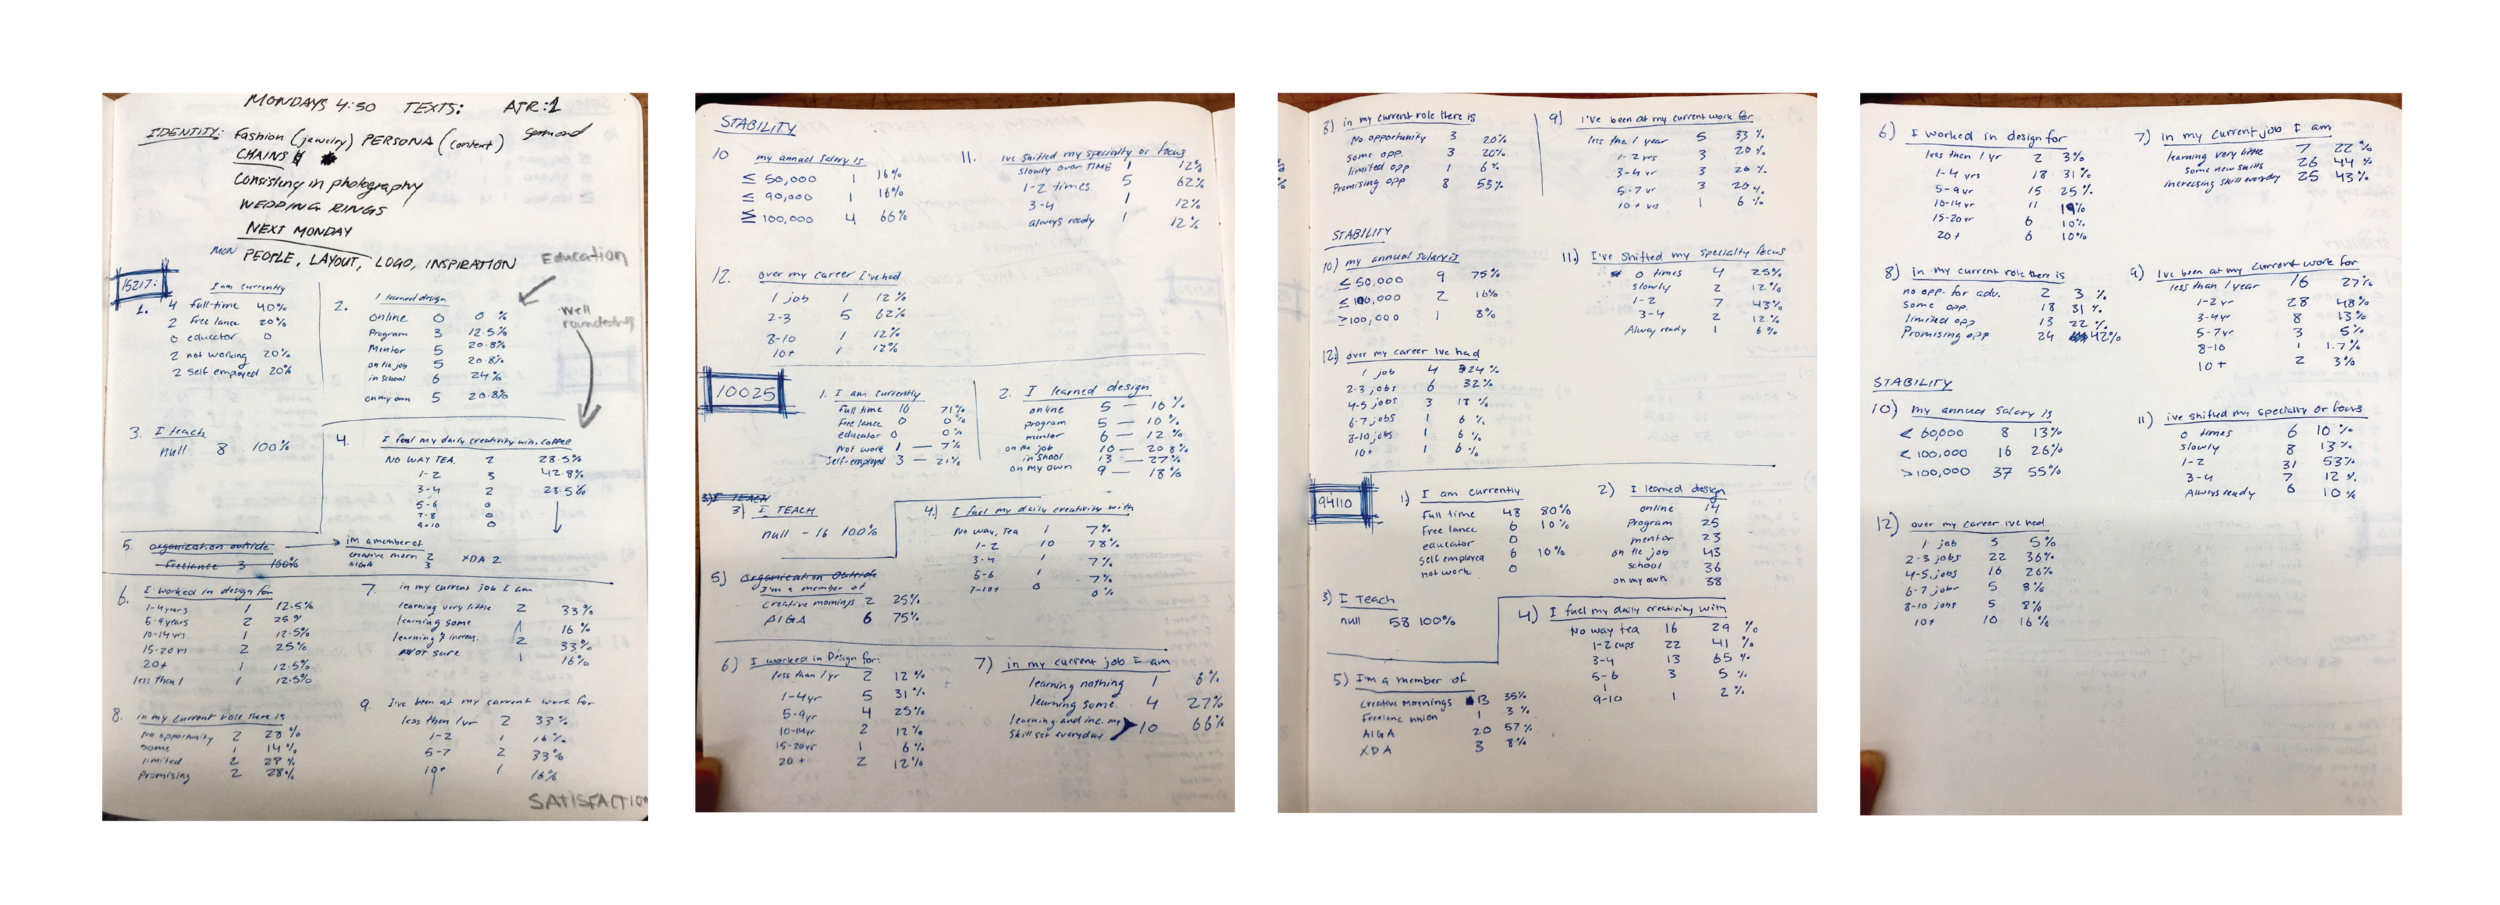 MONDAYS 4:50 TEXTS: ATR:1
IDENTITY: Fashion (jewelry) PERSONA (content)
CHAINS
Consistency in photography
WEDDING RINGS
NEXT MONDAY
MON PEOPLE, LAYOUT, LOGO, INSPIRATION
Education
well
15217:
1. I am currently
4 full-time 40%
2 free lance 20%
0 educator 0
2 not working 20%
2 self employed 20%
2. I learned design
online 0 0%
Program 3 12.5%
Mentor 5 20.8%
on the job 5 20.8%
in school 6 24%
on my own 5 20.8%
3. I teach
null 8 100%
4. I fuel my daily creativity with coffee
NO WAY TEA. 2 28.5%
1-2 3 42.8%
3-4 2 28.5%
5-6 0
7-8 0
9-10 0
5. organization outside
freelance 3 100%
im a member of
creative morn 2 XDA 2
AIGA 3
6. I worked in design for
1-4 years 1 12.5%
5-9 years 2 25%
10-14 yrs 1 12.5%
15-20 yrs 2 25%
20+ 1 12.5%
less then 1 1 12.5%
7. in my current job I am
learning very little 2 33%
learning some 1 16%
learning & increas. 2 33%
not sure 1 16%
8. in my current role there is
no opportunity 2 28%
some 1 14%
limited 2 28%
promising 2 28%
9. I've been at my current work for
less then 1yr 2 33%
1-2 1 16%
5-7 2 33%
10+ 1 16%
SATISFACTION
STABILITY
10 my annual salary is
≤ 50,000 1 16%
≤ 90,000 1 16%
≥ 100,000 4 66%
11. Ive shifted my specialty or focus
slowly over TIME 1 12%
1-2 times 5 62%
3-4 1 12%
always ready 1 12%
12. over my career I've had
1 job 1 12%
2-3 5 62%
8-10 1 12%
10+ 1 12%
10025
1. I am currently
Full time 10 71%
Free lance 0 0%
educator 0 0%
not work 1 — 7%
Self-employed 3 — 21%
2. I learned design
online 5 — 10%
program 5 — 10%
mentor 6 — 12%
on the job 10 — 20.8%
in School 13 — 27%
on my own 9 — 18%
3) I TEACH
3) I TEACH
null - 16 100%
4.) I fuel my daily creativity with
No way, Tea 1 7%
1-2 10 78%
3-4 1 7%
5-6 1 7%
7-10+ 0 0%
5) Organization Outside
I'm a member of
Creative mornings 2 25%
AIGA 6 75%
6) I worked in Design for:
less than 1yr 2 12%
1-4yr 5 31%
5-9yr 4 25%
10-14yr 2 12%
15-20yr 1 6%
20+ 2 12%
7) in my current job I am
learning nothing 1 6%
learning some 4 27%
learning and inc. my
Skill set everyday 10 66%
8) in my current role there is
No opportunity 3 20%
some opp. 3 20%
limited opp 1 6%
Promising opp 8 53%
9) I've been at my current work for
less tha 1 year 5 33%
1-2 yrs 3 20%
3-4 yr 3 20%
5-7 yr 3 20%
10+ yrs 1 6%
STABILITY
10) my annual salary is
≤ 50,000 9 75%
≤ 100,000 2 16%
≥ 100,000 1 8%
11.) I've Shifted my specialty focus
0 times 4 25%
slowly 2 12%
1-2 7 43%
3-4 2 12%
Always ready 1 6%
12.) over my career Ive had
1 job 4 24%
2-3 jobs 6 32%
4-5 jobs 3 18%
6-7 jobs 1 6%
8-10 jobs 1 6%
10+ 1 6%
94110
1) I am currently
Full time 48 80%
Free lance 6 10%
educator 0
self employed 6 10%
not work 0
2) I learned design
online 14
Program 25
mentor 23
on the job 43
school 36
on my own 38
3) I Teach
null 58 100%
4) I fuel my daily creativity with
No way tea 16 29%
1-2 cups 22 41%
3-4 13 65%
5-6 3 5%
9-10 1 2%
5) I'm a member of
Creative Mornings 13 35%
Freelanc union 1 3%
AIGA 20 57%
XDA 3 8%
6) I worked in design for
less then 1 yr 2 3%
1-4 yrs 18 31%
5-9yr 15 25%
10-14yr 11 19%
15-20yr 6 10%
20+ 6 10%
7) in my current job I am
learning very little 7 22%
some new skills 26 44%
increasing skill everyday 25 43%
8) in my current role there is
no opp. for adv. 2 3%
some opp. 18 31%
limited opp 13 22%
Promising opp 24 42%
9) Ive been at my current work for
less than 1 year 16 27%
1-2 yr 28 48%
3-4yr 8 13%
5-7yr 3 5%
8-10 1 1.7%
10+ 2 3%
STABILITY
10) my annual salary is
< 60,000 8 13%
< 100,000 16 26%
> 100,000 37 55%
11) ive shifted my specialty or focus
0 times 6 10%
slowly 8 13%
1-2 31 53%
3-4 7 12%
Always ready 6 10%
12) over my career ive had
1 job 3 5%
2-3 jobs 22 36%
4-5 jobs 16 26%
6-7 jobs 5 8%
8-10 jobs 5 8%
10+ 10 16%